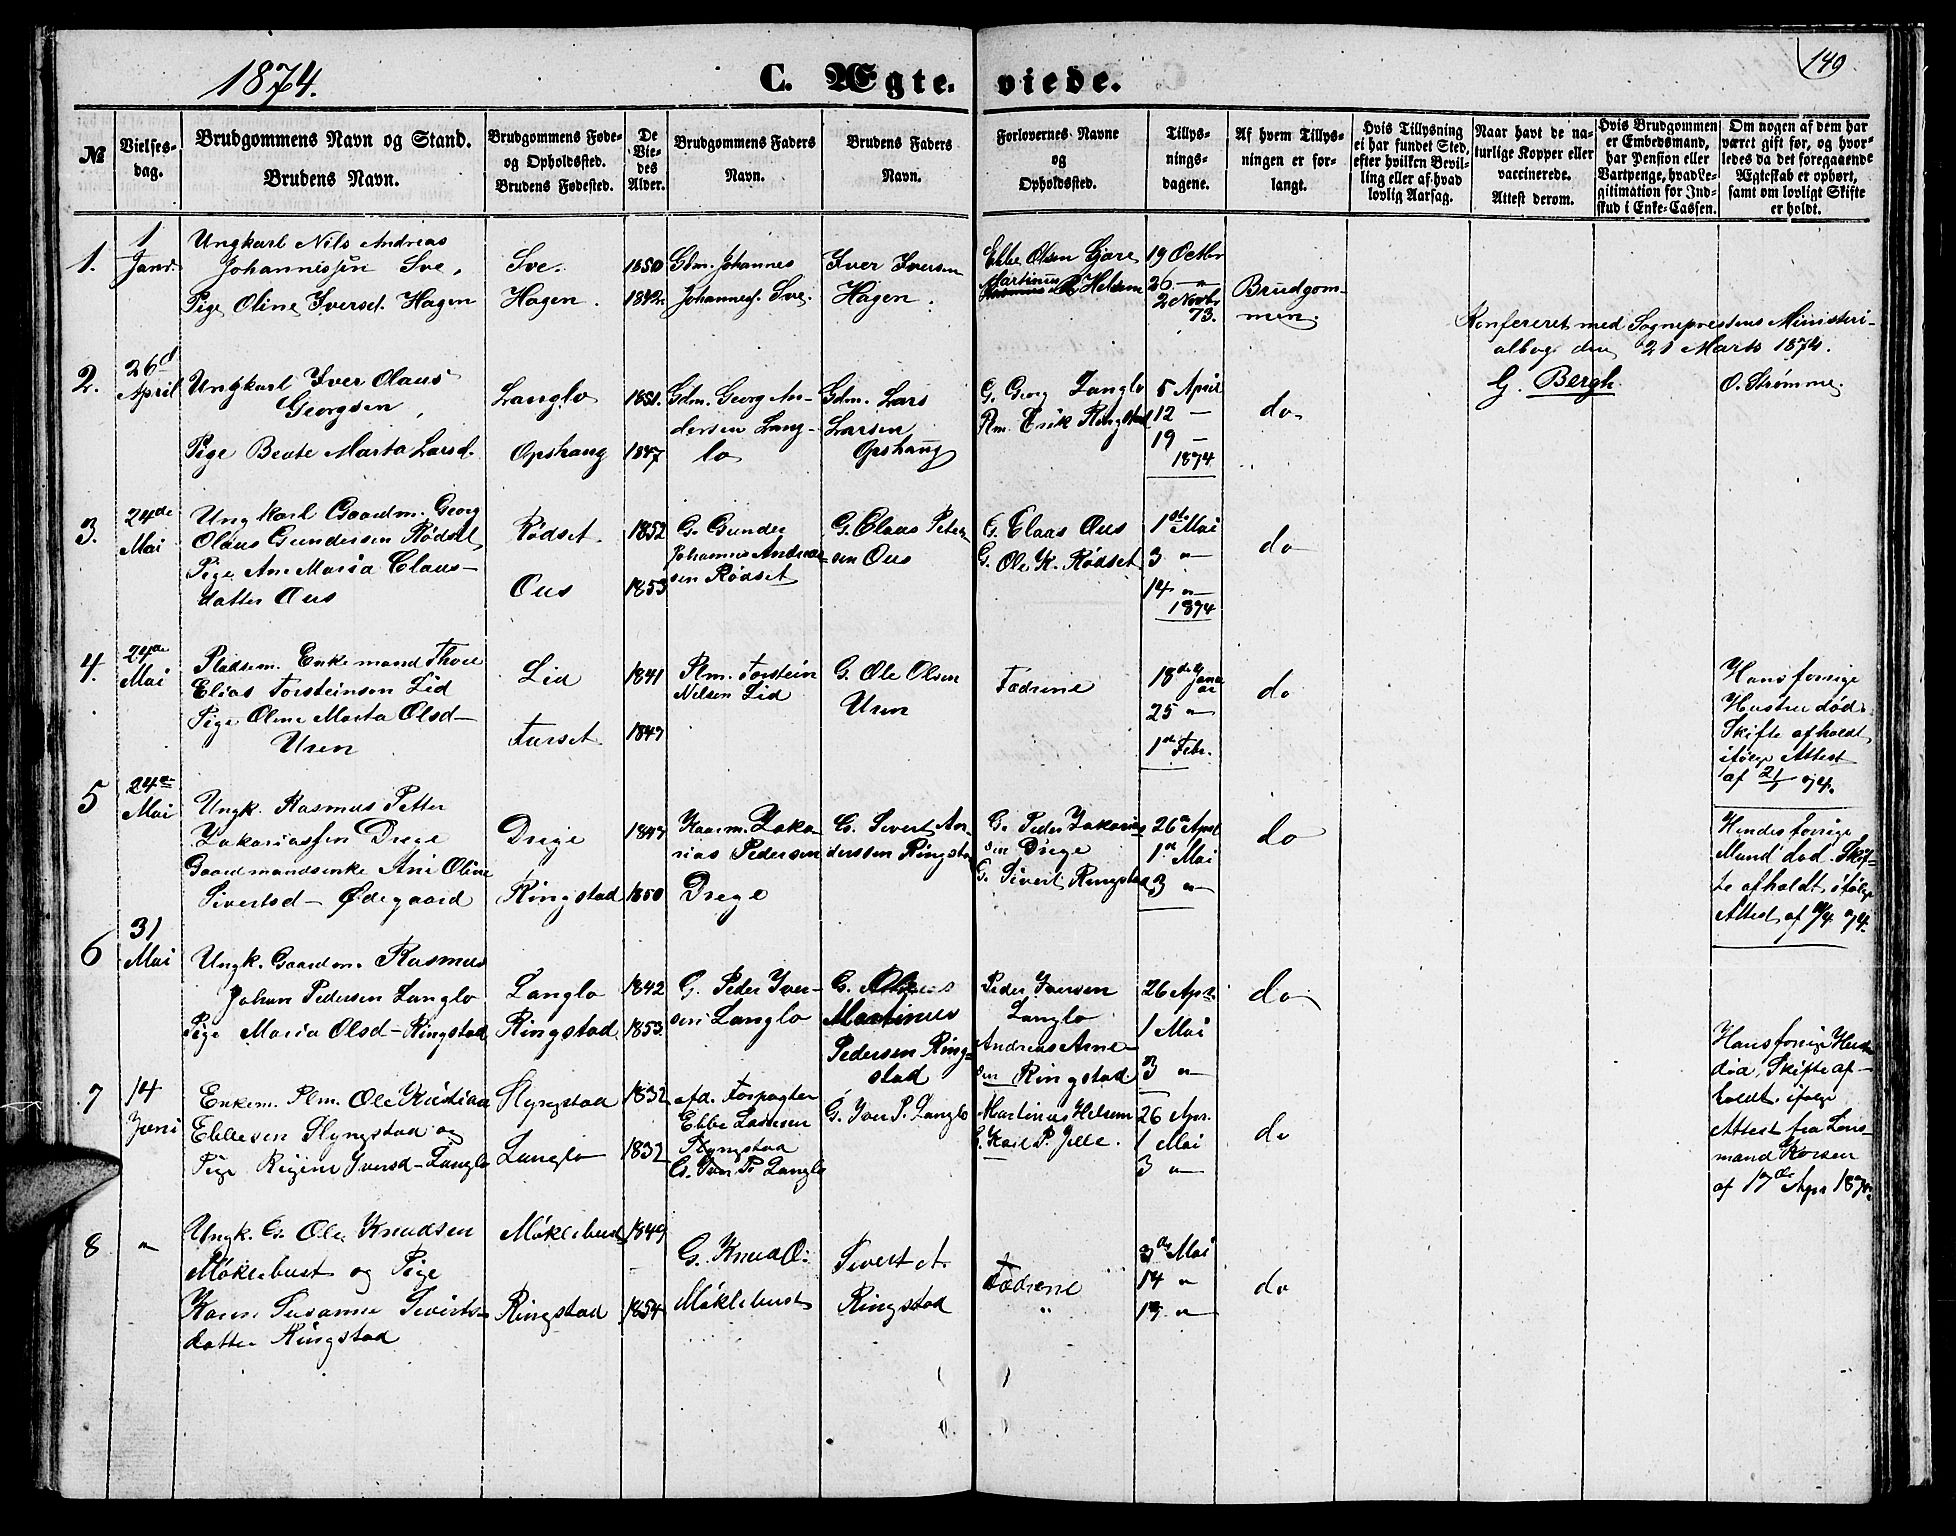 1874.
C. Ægteviede.
149
№
Vielses-
dag.
Brudgommens Navn og Stand.
Brudens Navn.
Brudgommens Føde-
og Opholdssted.
Brudens Fødested.
De
Vie-
des
Alder.
Brudgommens Faders
Navn.
Brudens Faders
Navn.
Forlovernes Navne
og
Opholdssted.
Tillys-
nings-
dagene.
Af hvem Tillys-
ningen er for-
langt.
Hvis Tillysning
ei har fundet Sted,
efter hvilken Bevil-
ling eller af hvad
lovlig Aarsag.
Naar havt de na-
turlige Kopper eller
vaccinerede.
Attest derom.
Hvis Brudgommen
er Embedsmand,
har Pension eller
Vartpenge, hvad Le-
gitimation for Ind-
skud i Enke-Cassen.
Om nogen af dem har
været gift før, og hvor-
ledes da det foregaaende
Ægteskab er ophørt,
samt om lovligt Skifte
er holdt.
1.
1
Janr.
Ungkarl Nils Andreas
Johannissen Sve,
Pige Oline Iversd. Hagen
Sve.
Hagen.
1850
1842.
Gdm. Johannes
Johannes. Sve.
Iver Iversen
Hagen.
Ebbe Olsen Gjære
Martinus Helsem
19 Octbr
26 — "
2 Novbr
73.
Brudgom-
men.
Konfereret med Sognepræstens Ministeri-
albog den 21 Marts 1874.
G. Bergh
O. Strømme.
2.
26d
April
Ungkarl Iver Olaus
Georgsen,
Pige Beate Marta Larsd.
Langlo
Opshaug
1851.
1847
Gdm. Georg An-
dersen Lang-
lo
Gdm. Lars
Larsen
Opshaug
G. Georg Langlo
Plm. Erik Ringstad
5 April
12 —
19 —
1874
do
3.
24de
Mai
Ungkarl Gaardm. Georg
Olaus Gundersen Rødset
Pige Ane Maria Claus-
datter Ous
Rødset
Ous
1852
1853
G. Gunder
Johannes Andreas-
sen Rødset
G. Claas Peter-
sen Ous
G. Claas Ous
G. Ole K. Rødset
1de Mai
3 "
14 "
1874
do
4.
24de
Mai
Pladsm. Enkemand Thore
Elias Torsteinsen Lid
Pige Oline Marta Olsd—
Uren
Lid
Furset
1841
1849
Plm. Torstein
Nilsen Lid
G. Ole Olsen
Uren
Fædrene
18de Janu
ar
25 "
1d Febr.
do
Hans forrige
Hustru død.
Skifte afholdt,
ifølge Attest
af 21/1 74.
5
24de
Mai
Ungk. Rasmus Petter
Zakariassen Drege
Gaardmandsenke Ane Oline
Sivertsd— Ødegaard
Drege
Ringstad
1849
1850
Kaarm. Zaka-
rias Pedersen
Drege
G. Sivert An-
derssen Ringstad
G. Peder Zakarias
sen Drege
G. Sivert Ringstad
26d April
1d Mai
3 "
do
Hendes forrige
Mand død. Skif-
te afholdt ifølge
Attest af /4 74.
6
31
Mai
Ungk. Gaardm. Rasmus
Johan Pedersen Langlo
Pige Maria Olsd— Ringstad
Langlo
Ringstad
1842
1853
G. Peder Iver-
sen Langlo
G.
Martinus
Pedersen Ring-
stad
Peder Iversen
Langlo
Andreas Arne-
sen Ringstad
26 Apr.
1 Mai
3 "
do
7
14
Juni
Enkem. Plm. Ole Kristian
Ebbesen Slyngstad og
Pige Regine Iversd— Langlo
Slyngstad
Langlo
1832
1832
Ad. Forpagter
Ebbe Larsen
Slyngstad
G. Iver P. Langlo
G. Iver P. Langlo
Martinus Helsem
G. Karl P. Jelle.
26 Apr.
1 Mai
3 "
do
Hans forrige Hustru
død. Skifte af-
holdt, ifølge
Attest fra Lens-
mand Korsen
af 17de Apr 1874
8
"
Ungk. G. Ole Knudsen
Møklebust og Pige
Karen Susanne Siverts-
datter Ringstad
Møklebust
Ringstad
1849
1854
G. Knud O.
Møklebust
Sivert A.
Ringstad
Fædrene
"
3de Mai
14 "
17 "
do